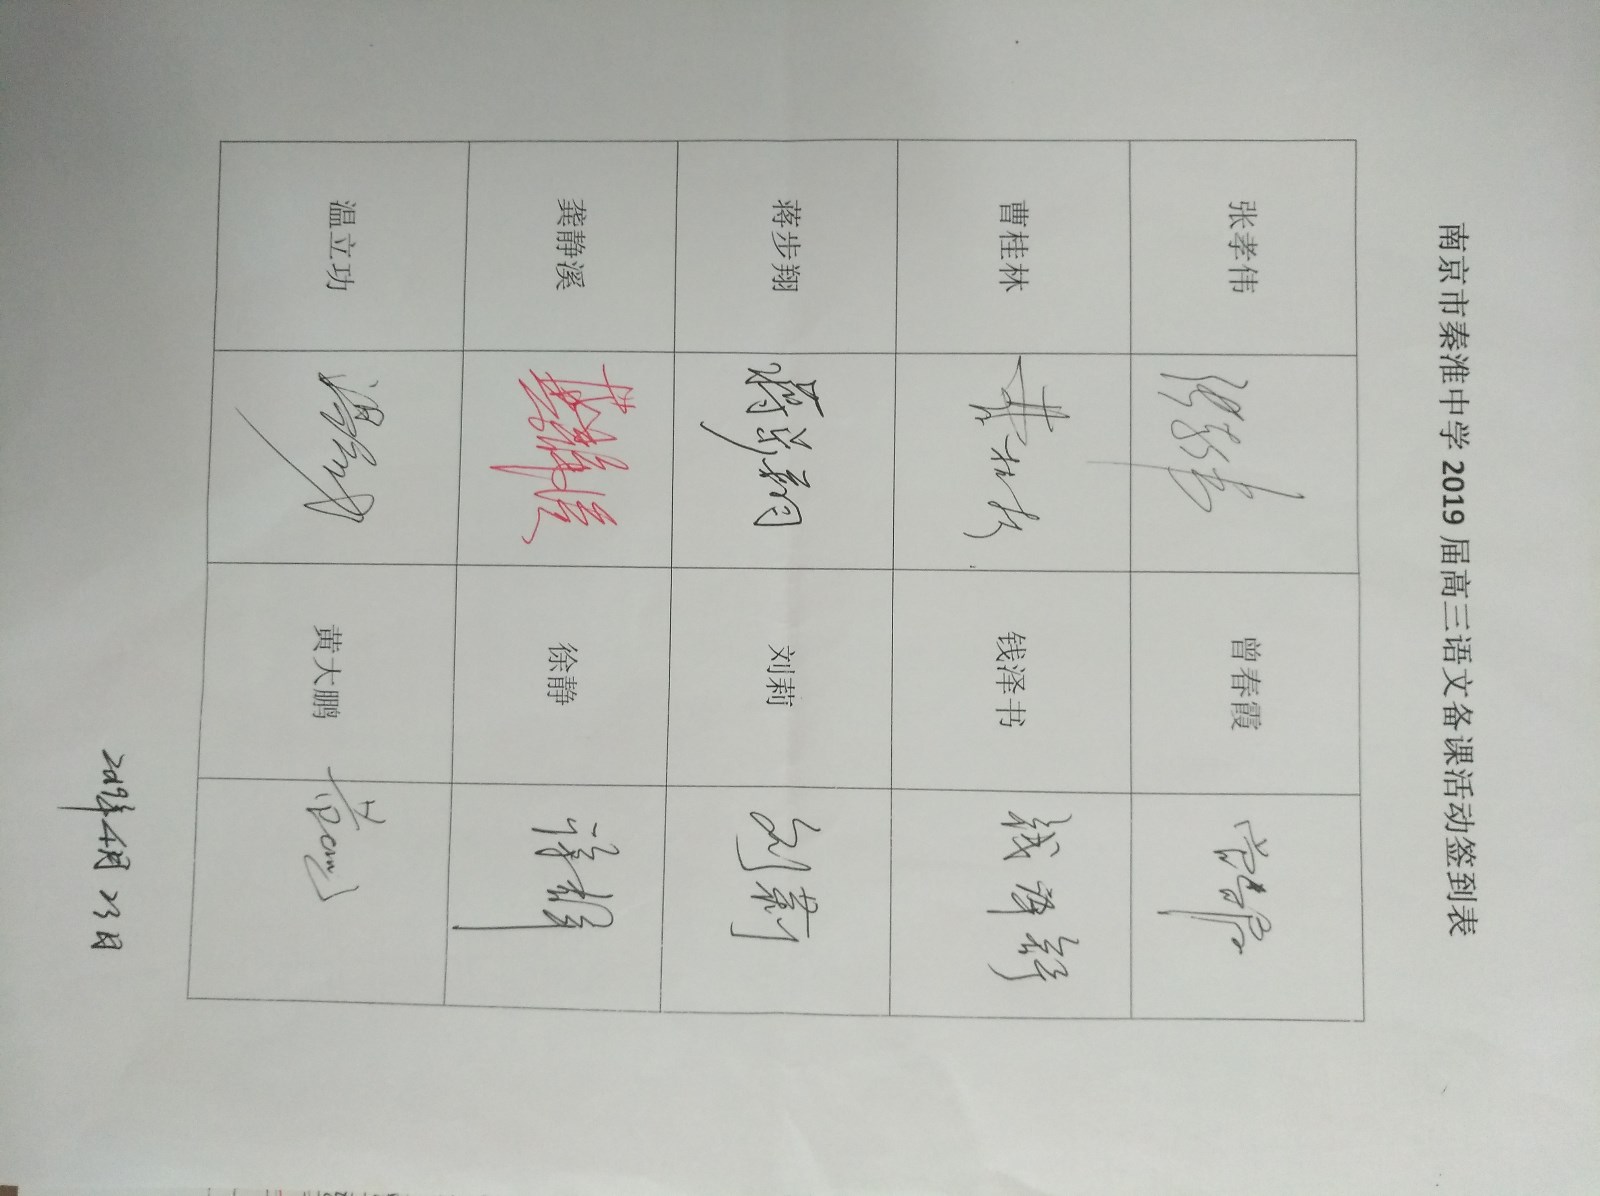 南京市秦淮中学 2019 届高三语文备课活动签到表
张孝伟 曾春霞
曹桂林 钱泽书 钱泽书
蒋步翔 蒋步翔 刘莉 刘莉
龚静溪 龚静溪 徐静 徐静
温立功 温立功 黄大鹏
2019年4月23日